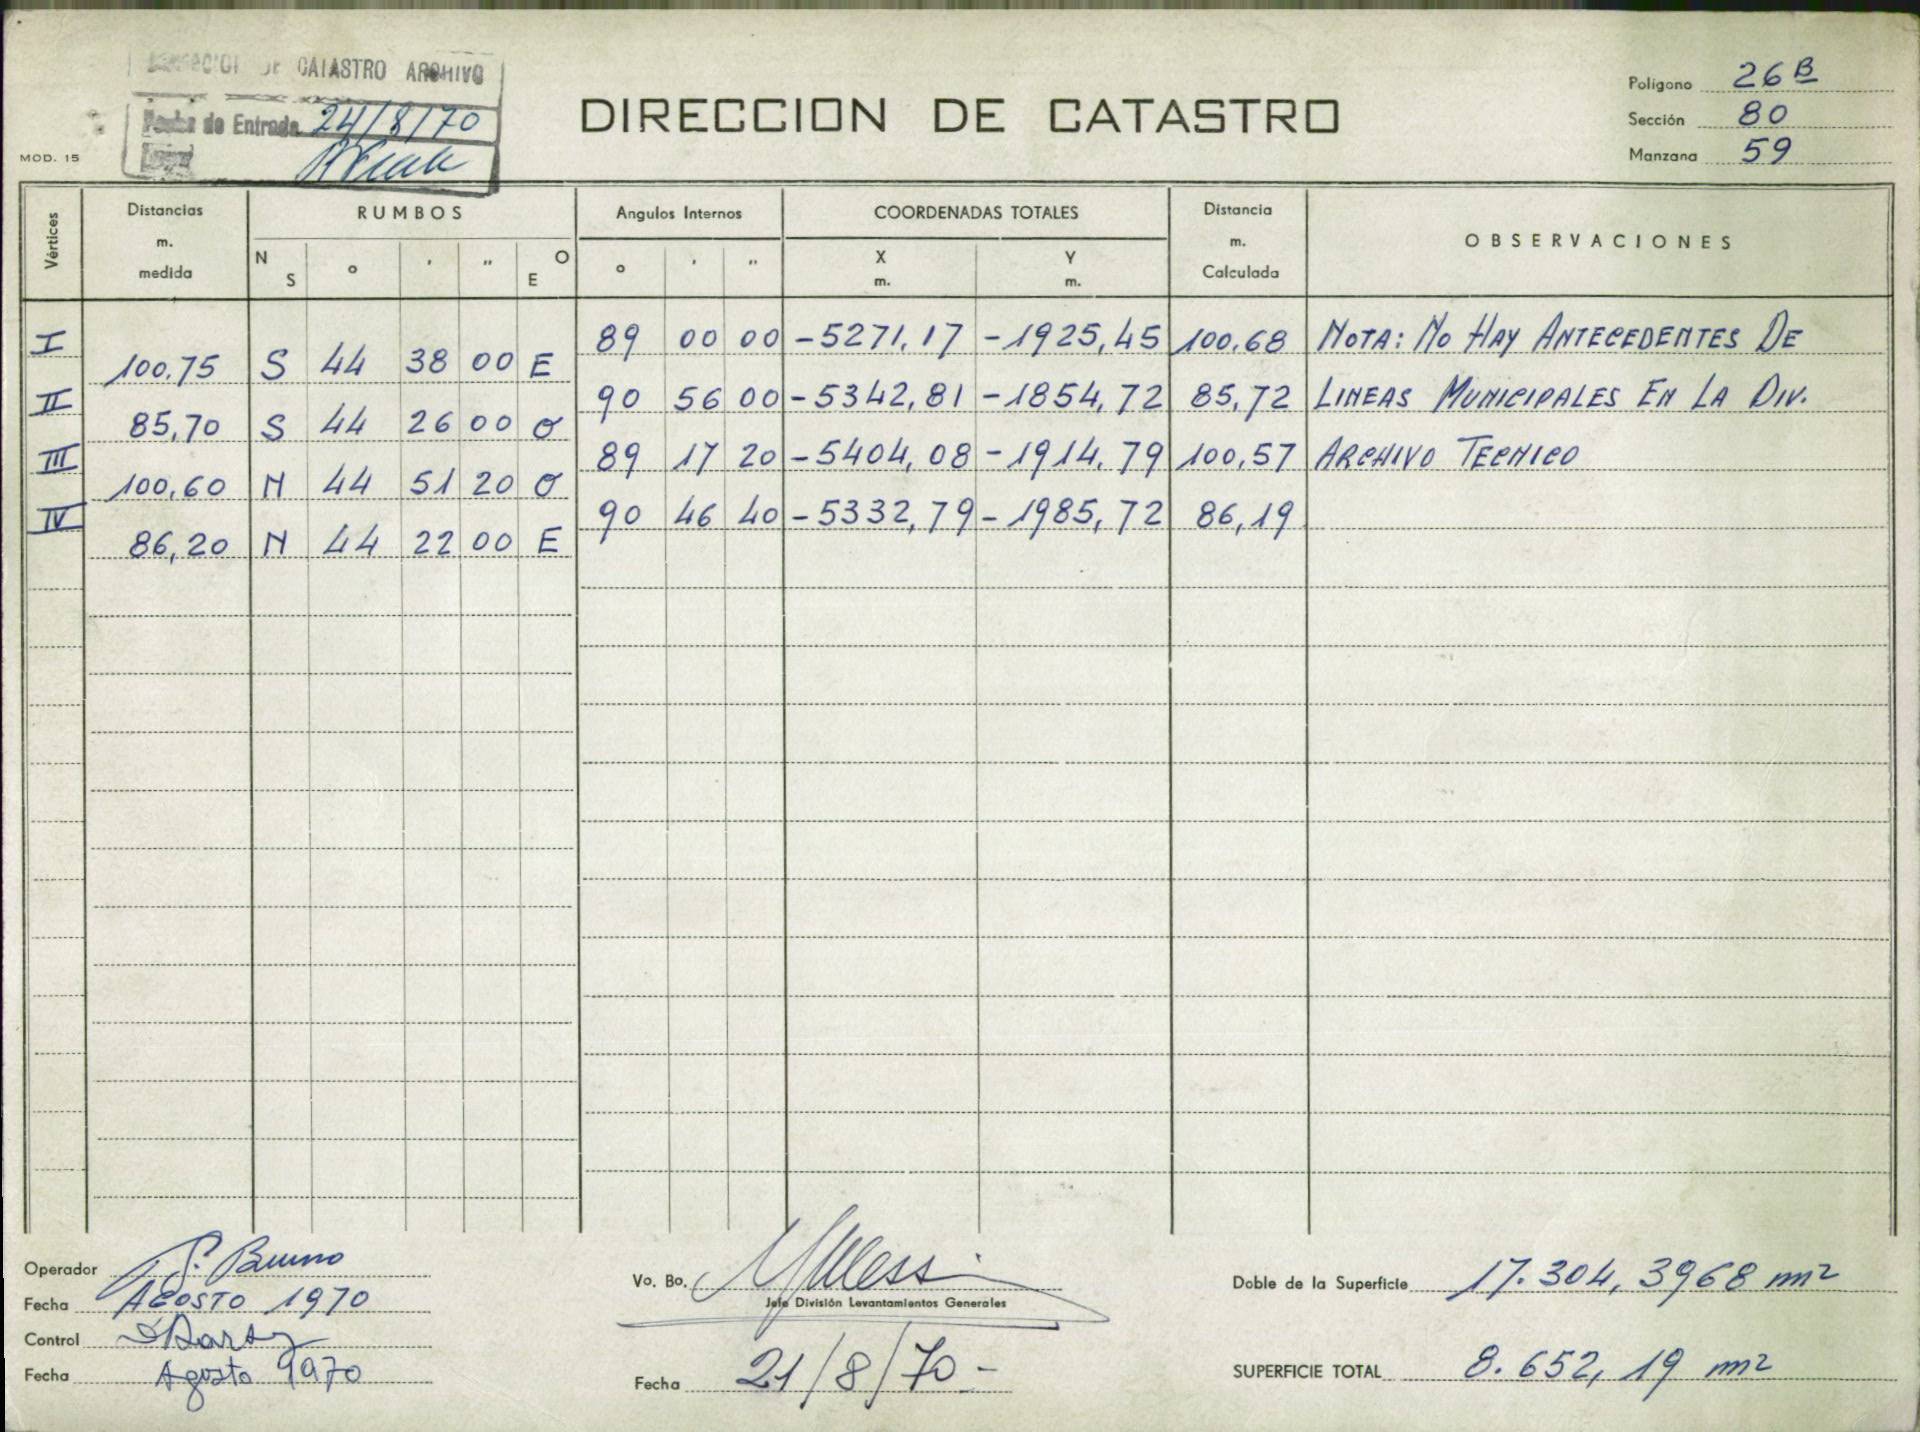 DIRECCION DE CATASTRO ARCHIVO
Fecha de Entrada 24/8/70
MOD. 15
DIRECCION DE CATASTRO
Polígono 26 B
Sección 80
Manzana 59
Vértices
Distancias m. medida
RUMBOS
N S ° ' " O E
Angulos Internos
° ' "
COORDENADAS TOTALES
X m. Y m.
Distancia m. Calculada
OBSERVACIONES
I 89 00 00 -5271,17 -1925,45 100,68 NOTA: NO HAY ANTECEDENTES DE
100,75 S 44 38 00 E
II 90 56 00 -5342,81 -1854,72 85,72 LINEAS MUNICIPALES EN LA DIV.
85,70 S 44 26 00 O
III 89 17 20 -5404,08 -1914,79 100,57 ARCHIVO TECNICO
100,60 N 44 51 20 O
IV 90 46 40 -5332,79 -1985,72 86,19
86,20 N 44 22 00 E
Operador
Fecha AGOSTO 1970
Control
Fecha Agosto 1970
Vo. Bo.
Jefe División Levantamientos Generales
Fecha 21/8/70-
Doble de la Superficie 17.304,3968 m2
SUPERFICIE TOTAL 8.652,19 m2